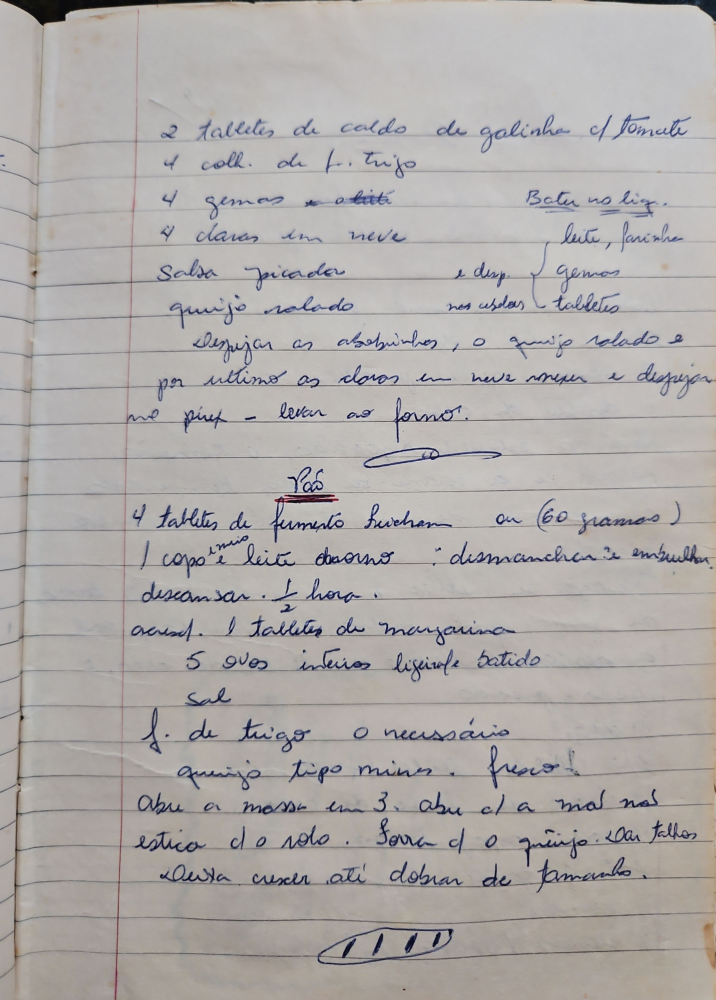 2 tabletes de caldo de galinha c/ tomate
4 colh. de f. trigo
4 gemas
Bater no liq.
4 claras em neve
leite, farinha
Salsa picada
e desp.
gemas
queijo ralado
tabletes
Despejar as abobrinhas, o queijo ralado e
por ultimo as claras em neve mexer e despejar
no pirex - levar ao forno.
Pão
4 tabletes de fermento ou (60 gramas)
1 copo e meio leite morno : desmanchar e embrulhar.
descansar. 1/2 hora.
acresc. 1 tabletes de margarina
5 ovos inteiros batido
sal
f. de trigo o necessário
queijo tipo minas. fresco!
Abre a massa em 3. abre c/ a mão não
estica c/ o rolo. Forra c/ o queijo. Dar talhos
Deixa crescer até dobrar de tamanho.